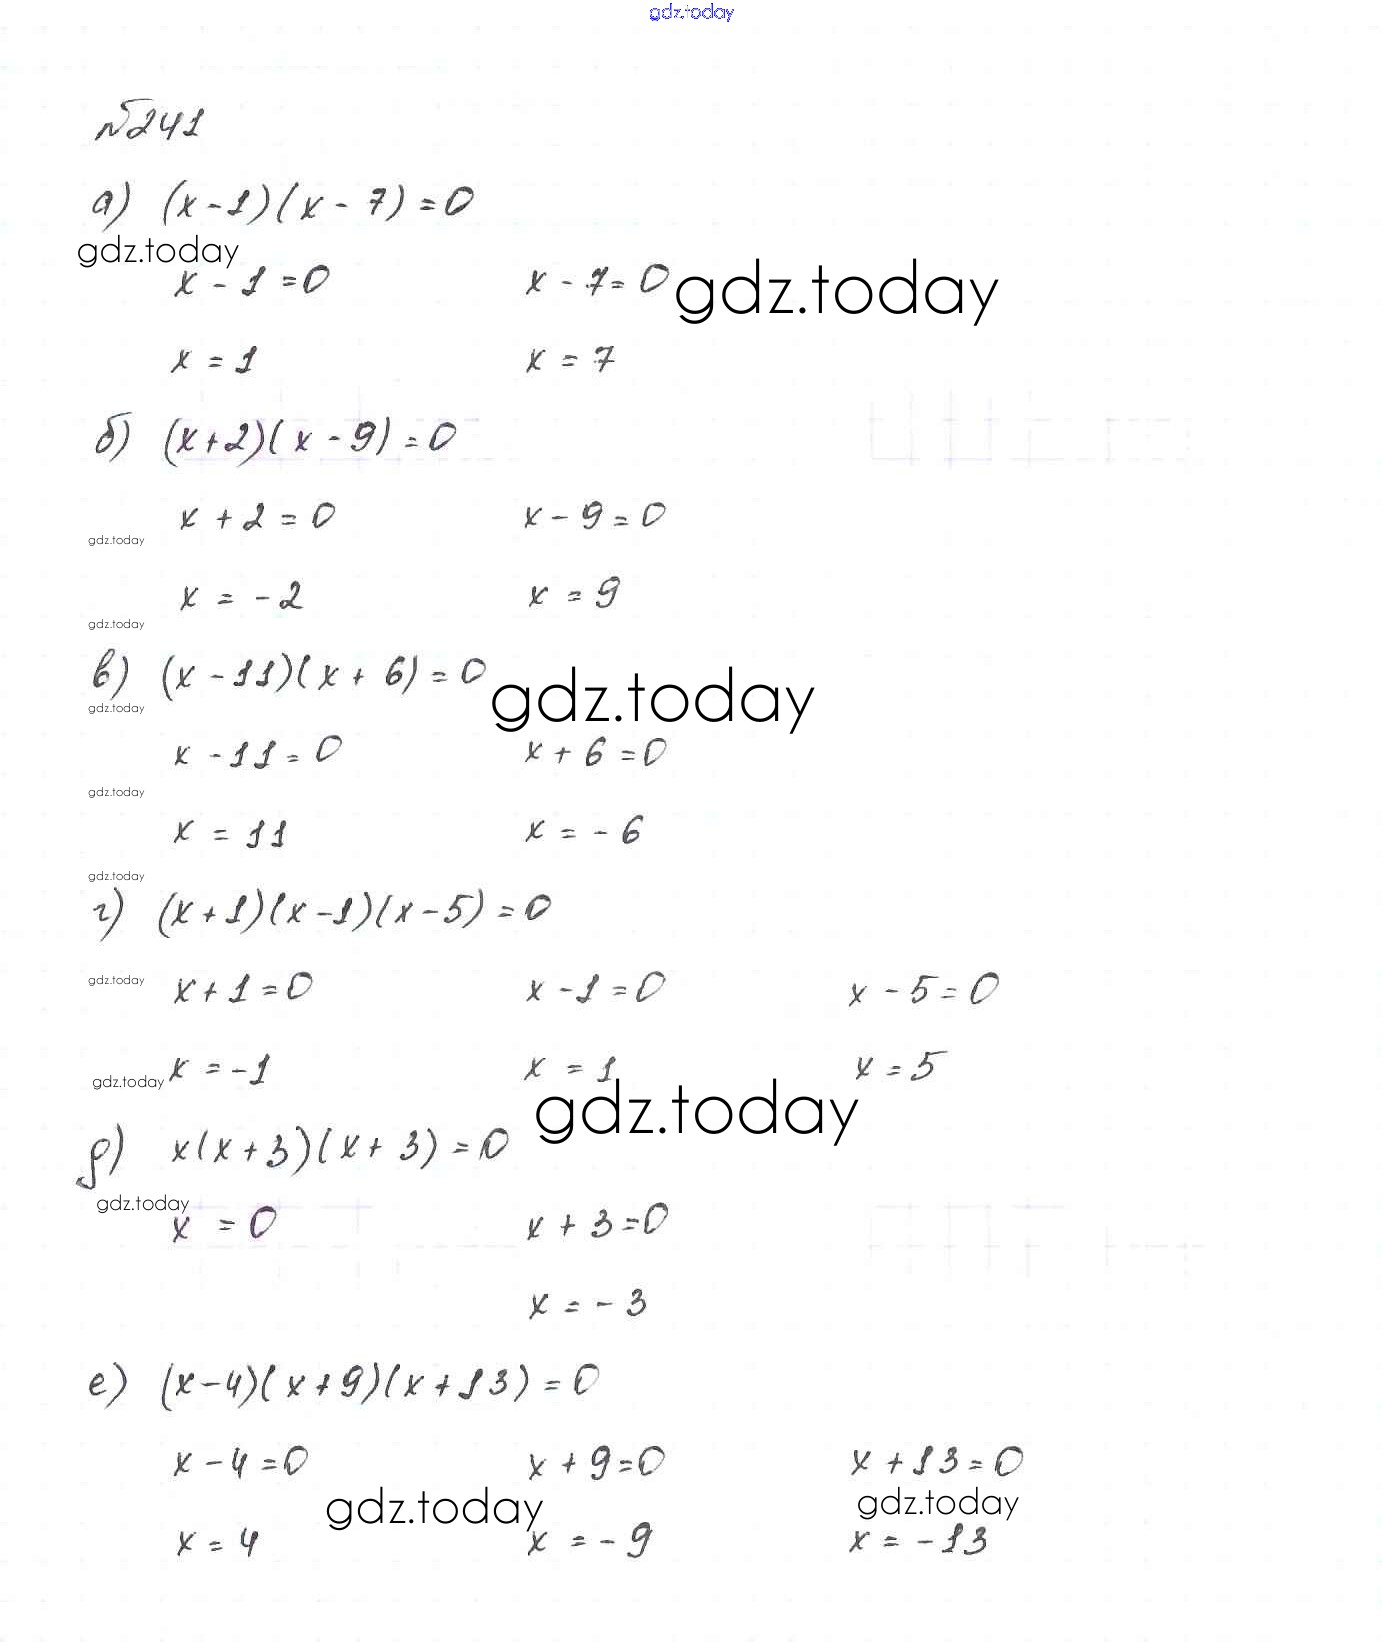 gdz.today
№241
а) (x-1)(x-7)=0
gdz.today
x-1=0 x-7=0 gdz.today
x=1 x=7
б) (x+2)(x-9)=0
x+2=0 x-9=0
gdz.today
x=-2 x=9
gdz.today
в) (x-11)(x+6)=0 gdz.today
gdz.today
x-11=0 x+6=0
gdz.today
x=11 x=-6
gdz.today
г) (x+1)(x-1)(x-5)=0
gdz.today x+1=0 x-1=0 x-5=0
gdz.today x=-1 x=1 x=5
gdz.today
д) x(x+3)(x+3)=0
gdz.today
x=0 x+3=0
x=-3
е) (x-4)(x+9)(x+13)=0
x-4=0 x+9=0 x+13=0
gdz.today gdz.today
x=4 x=-9 x=-13